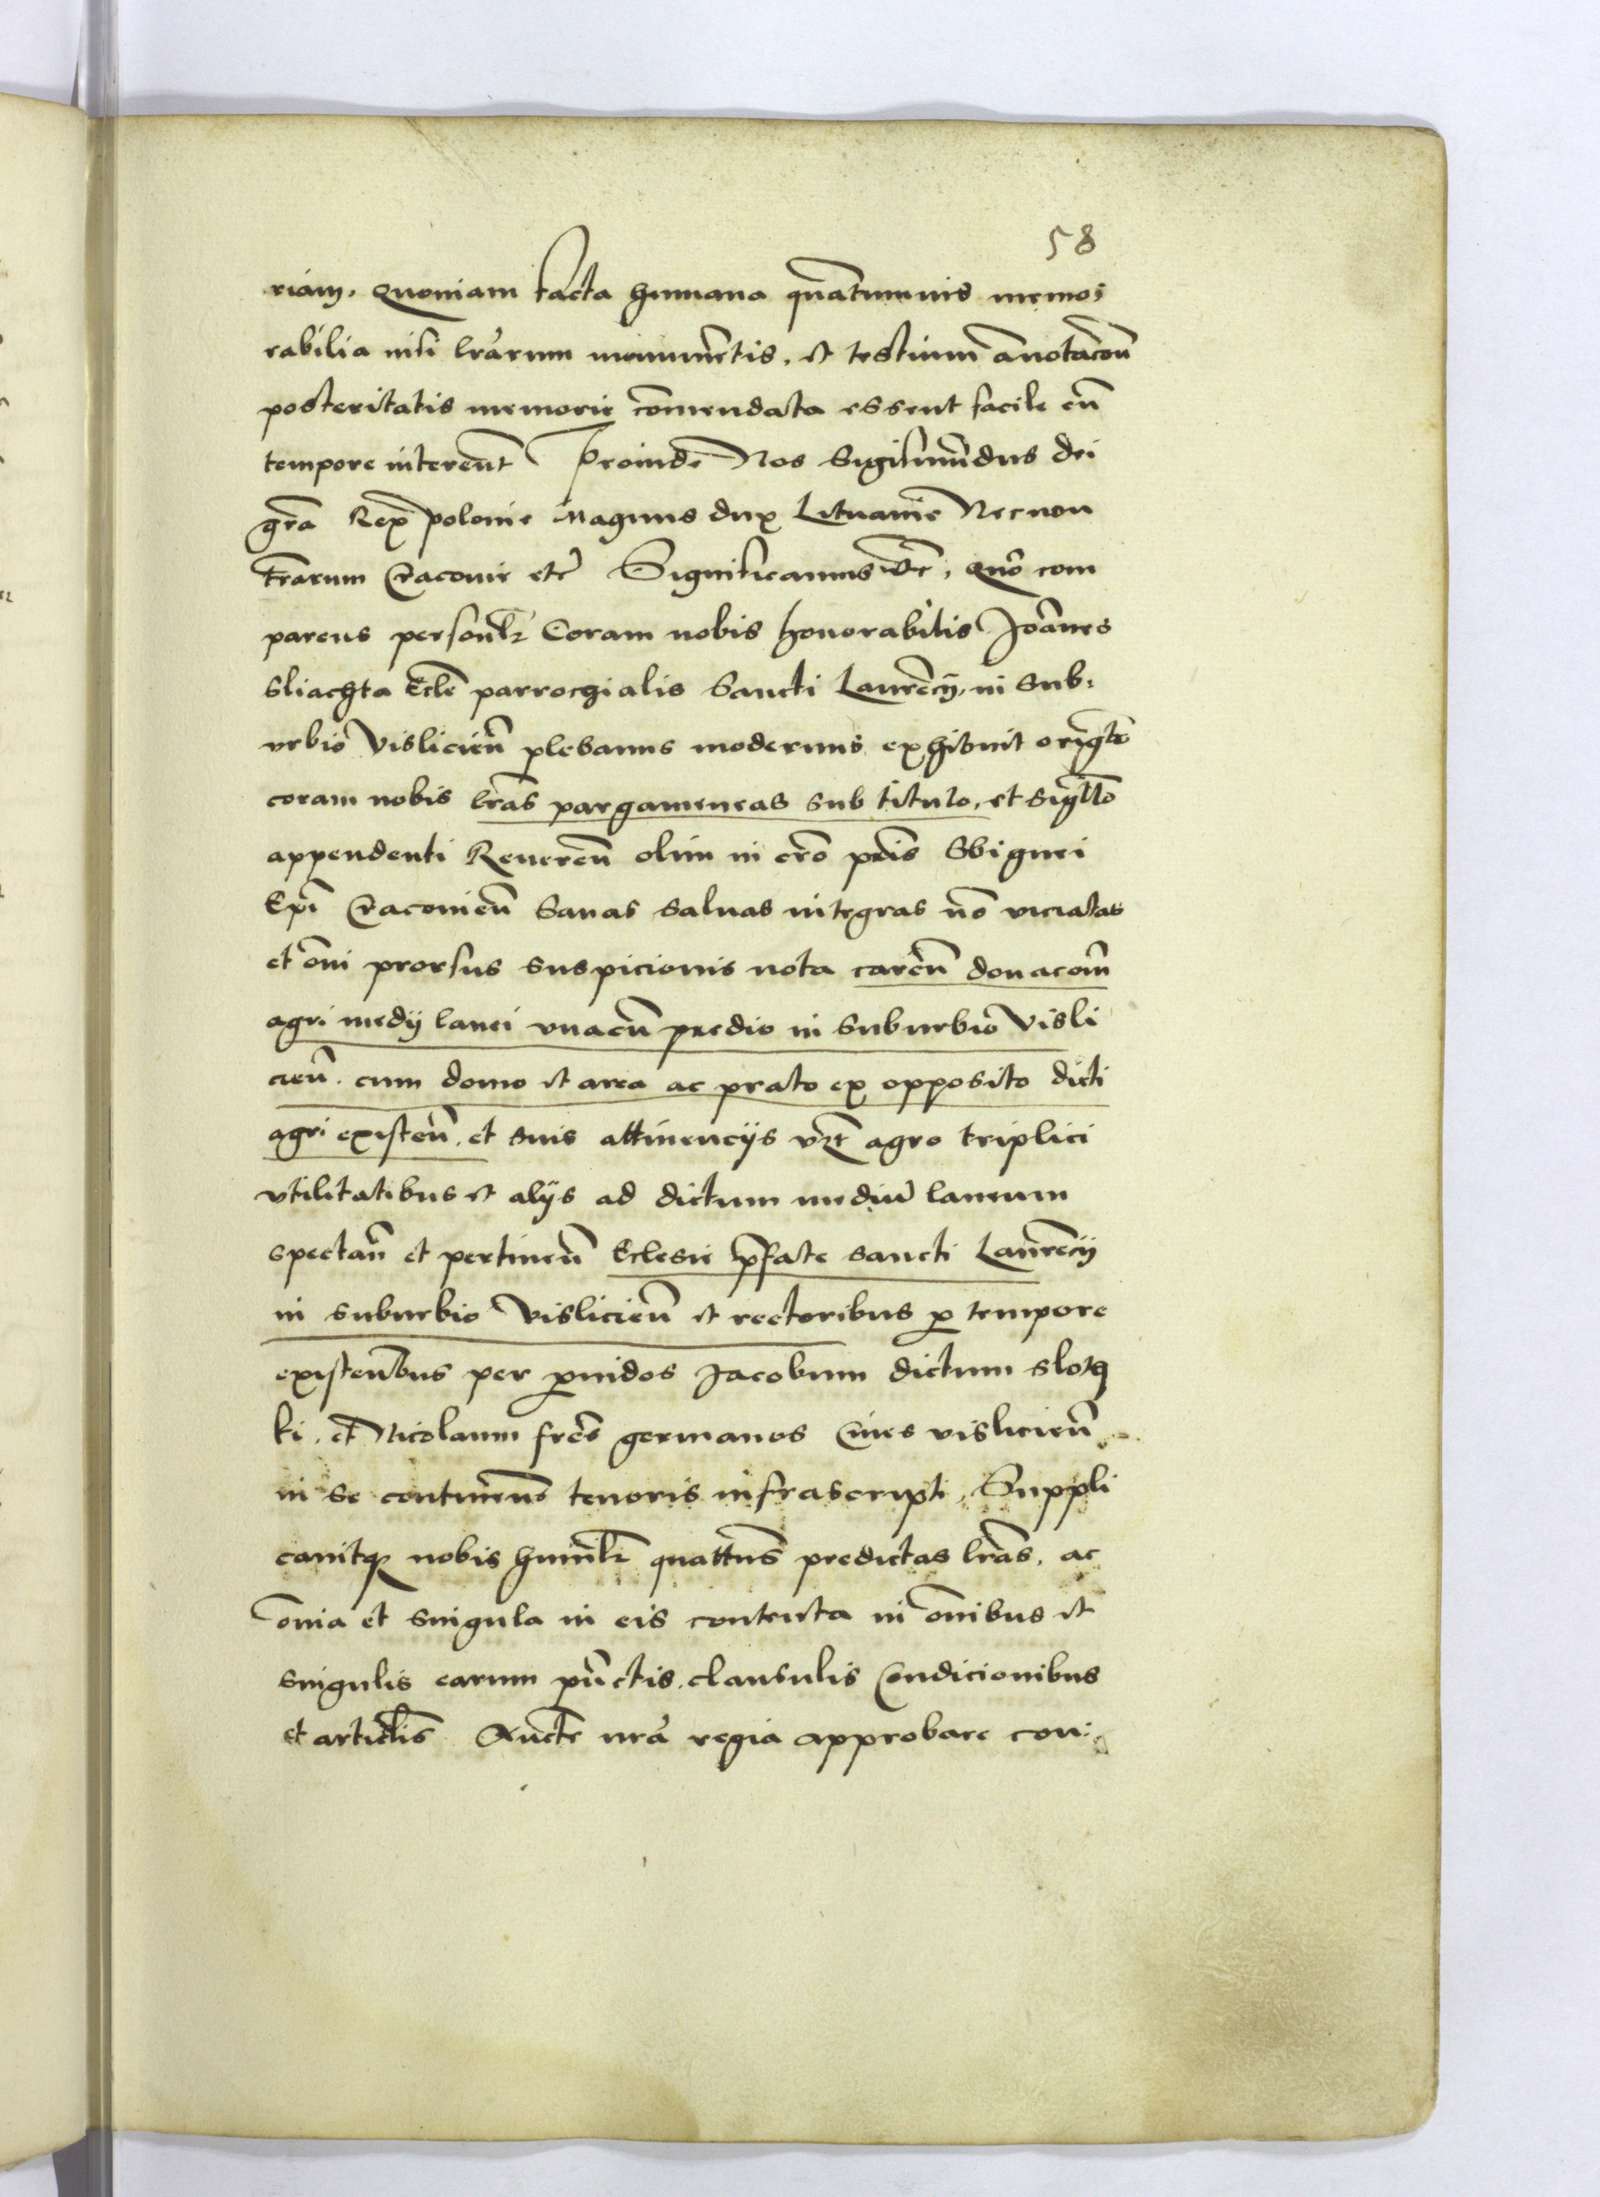 58
riam. Quoniam facta humana quātumuis memo
rabilia nisi lrārum monumētis. et testium ānotacōn
posteritatis memorie cōmendata essent facile cū
tempore intereūt Proinde Nos Sigismūdus dei
grā Rex polonie Magnus dux Lituanie Nec non
trārum Cracouie etc̄ Significamus etc. Quō com
parens personlr̄ Coram nobis honorabilis Joānnes
Sliachta Eclē parrochialis Sancti Laurēcij in Sub
vrbio Vislicieñ plebanus modernus exhibuit
coram nobis lrās pargameneas sub titulo, et Sigillo
appendenti Reuereñ olim in crō prīs Sbignei
Epī Cracouieñ Sanas Saluas integras nō viciatas
et ōni prorsus suspicionis nota careñ donacōm
agri medij lanei vnacū predio in Suburbio Visli
cieñ. cum domo et area ac prato ex opposito dicti
agri existeñ. et suis attinencijs vꝫt agro triplici
vtilitatibus et alijs ad dictum mediū laneum
spectañ et pertineñ Eclesie p̄fate Sancti Laurēcij
in suburbio Vislicieñ et rectoribus p̄ tempore
existeñbus per ꝓuidos Jacobum dictum Sloth
ki. et Nicolaum frēs germanos Ciues vislicieñ
in se contineñ tenoris infrascripti. Suppli
cauitqꝫ nobis humlr̄ quattn̄s predictas lrās. ac
ōnia et singula in eis contenta in ōnibus et
singulis earum pūctis. clausulis Condicionibus
et articlis Auctē nrā regia approbare con